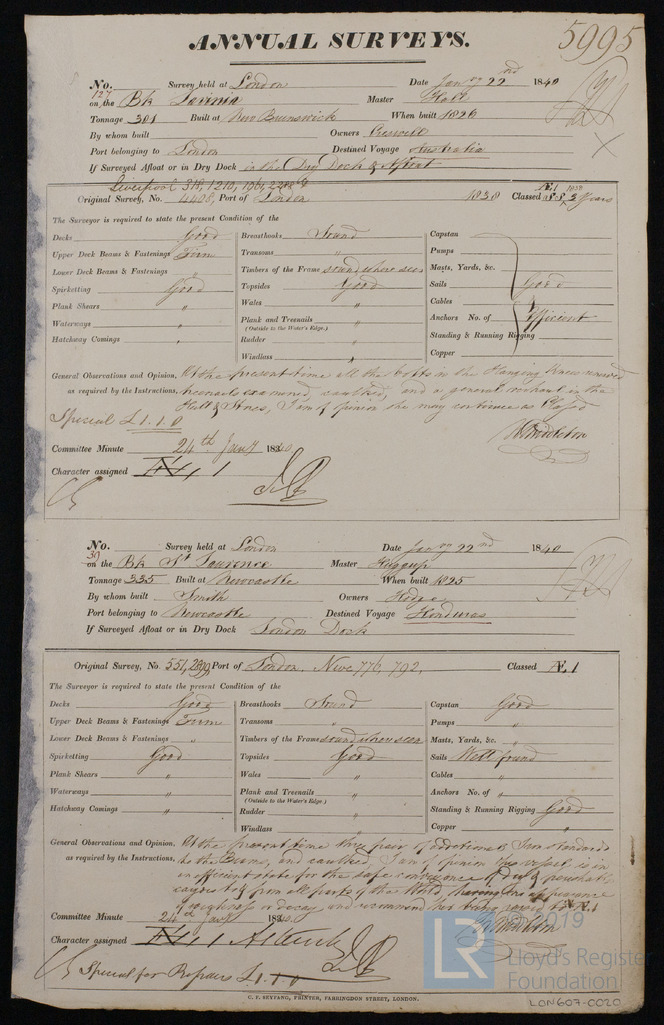 ANNUAL SURVEYS.
5995
No. 127 Survey held at London Date Jany 22nd 1840
on the Bk Lavinia Master Hall
Tonnage 301 Built at New Brunswick When built 1826
By whom built Owners
Port belonging to London Destined Voyage Australia
If Surveyed Afloat or in Dry Dock in the Dry Dock & Afloat
Liverpool 318, 1210, 196,
Original Survey, No. 4408, Port of London 1838 Classed Æ1 3 Years
The Surveyor is required to state the present Condition of the
Decks Good Breasthooks Sound Capstan
Upper Deck Beams & Fastenings Firm Transoms Pumps
Lower Deck Beams & Fastenings " Timbers of the Frame sound where seen Masts, Yards, &c.
Spirketting Good Topsides Good Sails Good
Plank Shears " Wales Cables &
Waterways " Plank and Treenails (Outside to the Water's Edge.) Anchors No. of Efficient
Hatchway Comings " Rudder " Standing & Running Rigging
Windlass " Copper
General Observations and Opinion, At the present time all the bolts in the Hanging Knees renewed
as required by the Instructions, treenails examined, caulked, and a general overhaul in the
Hull & Stores, I am of opinion she may continue as Classed
Special £1.1.0
Committee Minute 24th Jany 1840
Character assigned Æ 1
No. 39 Survey held at London Date Jany 22nd 1840
on the Bk St Lawrence Master Huggup
Tonnage 335 Built at Newcastle When built 1825
By whom built Smith Owners Hodge
Port belonging to Newcastle Destined Voyage Honduras
If Surveyed Afloat or in Dry Dock London Dock
Original Survey, No. 551, Port of London, Newc 776, 792, Classed Æ1
The Surveyor is required to state the present Condition of the
Decks Good Breasthooks Sound Capstan Good
Upper Deck Beams & Fastenings Firm Transoms " Pumps "
Lower Deck Beams & Fastenings " Timbers of the Frame sound where seen Masts, Yards, &c. "
Spirketting Good Topsides Good Sails Well found
Plank Shears " Wales " Cables "
Waterways " Plank and Treenails " (Outside to the Water's Edge.) Anchors No. of "
Hatchway Comings " Rudder " Standing & Running Rigging Good
Windlass Copper "
General Observations and Opinion, At the present time three pair of additional Iron Standards
as required by the Instructions, to the Beams, and caulked, I am of opinion this vessel is in
an efficient state for the safe conveyance of dry & perishable
cargoes to & from all parts of the World, having no appearance
of weakness or decay and recommend her being Æ1
Committee Minute 24th Jany 1840.
Character assigned Æ 1
Special for Repairs £1.1.0
C. F. SEYFANG, PRINTER, FARRINGDON STREET, LONDON.
© 2019
LR
Lloyd's Register
Foundation
LON607-0020